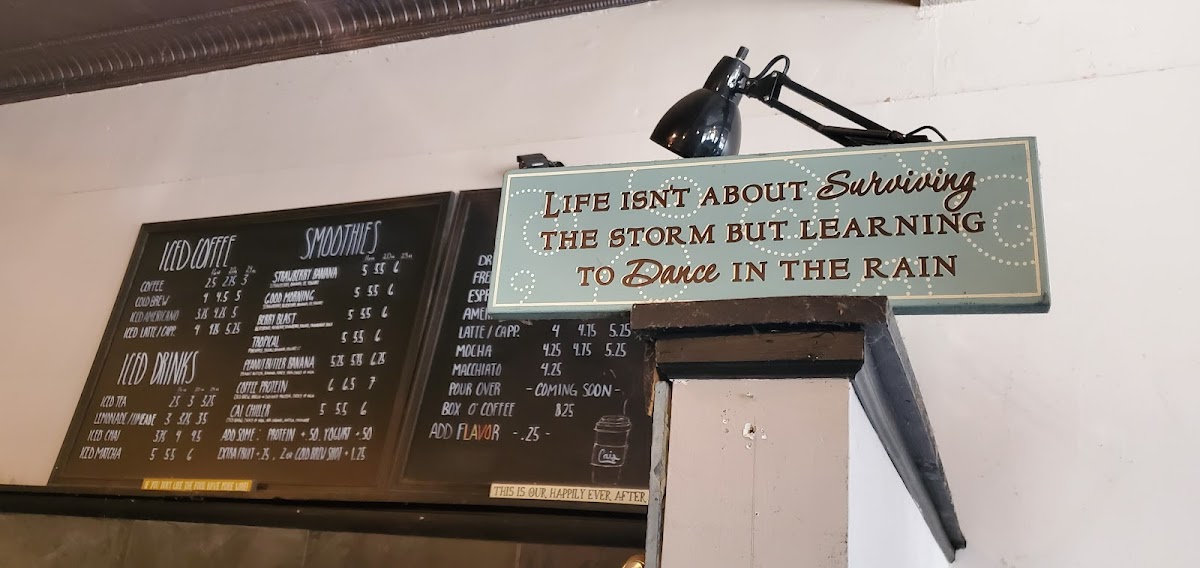 LIFE ISN'T ABOUT Surviving
THE STORM BUT LEARNING
TO Dance IN THE RAIN
ICED COFFEE
COFFEE 2.5 2.75 3
COLD BREW 4 4.5 5
ICED AMERICANO 3.75 4.25 5
ICED LATTE / CAPP. 4 4.75 5.25
ICED DRINKS
ICED TEA 2.5 3 3.25
LEMONADE / LIMEADE 3 3.25 3.5
ICED CHAI 3.75 4 4.5
ICED MATCHA 5 5.5 6
SMOOTHIES
STRAWBERRY BANANA 5 5.5 6
GOOD MORNING 5 5.5 6
BERRY BLAST 5 5.5 6
TROPICAL 5 5.5 6
PEANUT BUTTER BANANA 5.25 5.75 6.25
COFFEE PROTEIN 6 6.5 7
CAI CHILLER 5 5.5 6
ADD SOME: PROTEIN +.50, YOGURT +.50
EXTRA FRUIT +.25, 2oz COLD BREW SHOT +1.75
DR
FRE
ESP
AMER
LATTE / CAPP. 4 4.75 5.25
MOCHA 4.25 4.75 5.25
MACCHIATO 4.25
POUR OVER - COMING SOON -
BOX O' COFFEE $25
ADD FLAVOR -.25-
THIS IS OUR HAPPILY EVER AFTER